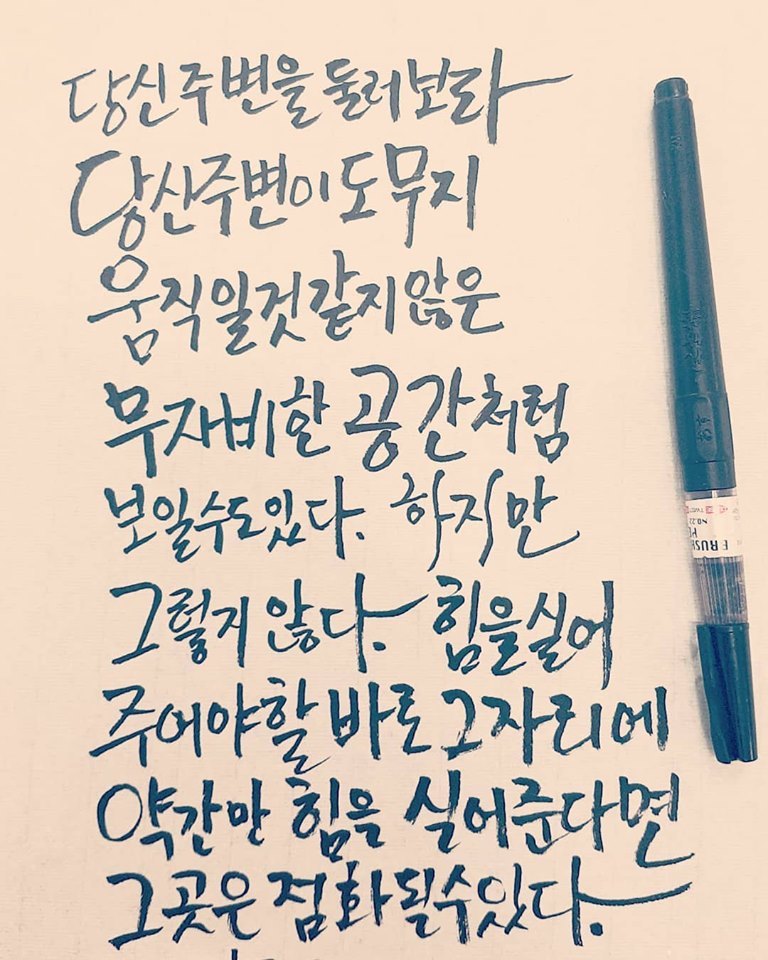 당신 주변을 둘러보라
당신 주변이 도무지
움직일것 같지 않은
무자비한 공간처럼
보일수도있다. 하지만
그렇지 않다. 힘을실어
주어야할 바로 그자리에
약간만 힘을 실어준다면
그곳은 점화될수있다.
BRUSH
NO.22